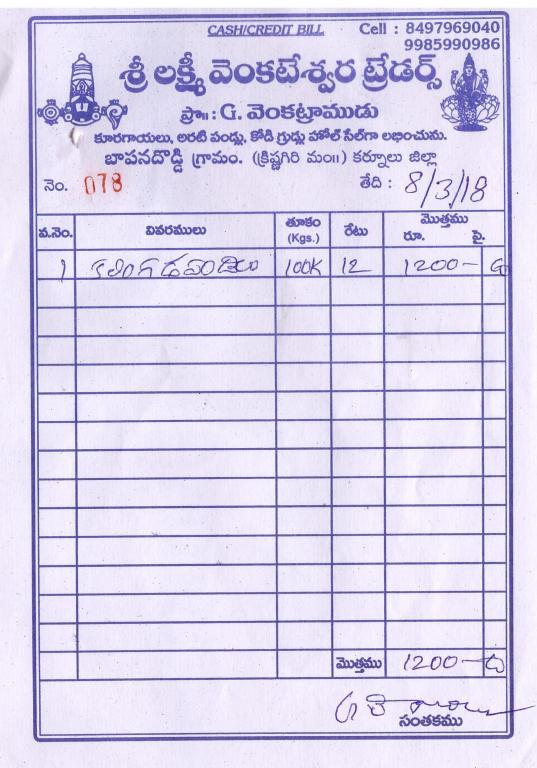 CASH/CREDIT BILL
Cell : 8497969040
9985990986
శ్రీ లక్ష్మీ వెంకటేశ్వర ట్రేడర్స్
ప్రొ॥ : G. వెంకట్రాముడు
కూరగాయలు, అరటి పండ్లు, కోడి గ్రుడ్లు హోల్ సేల్‌గా లభించును.
బాపనదొడ్డి గ్రామం. (క్రిష్ణగిరి మం॥) కర్నూలు జిల్లా
నెం. 078 తేది : 8/3/18
వ.నెం. వివరములు తూకం (Kgs.) రేటు మొత్తము రూ. పై.
1 కలింగడపండులు 100K 12 1200-
మొత్తము 1200-
సంతకము